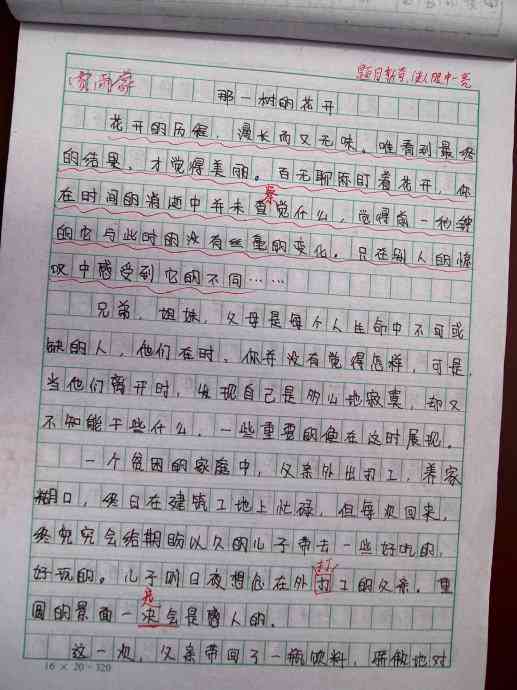 题目新奇，使人眼中一亮
那一树的花开
花开的历程，漫长而又无味。唯看到最终
的结果，才觉得美丽。百无聊赖盯着花开，你
在时间的消逝中并未查觉什么，觉得前一他貌
察
的它与此时的没有丝毫的变化。只在别人的惊
叹中感受到它的不同……
兄弟，姐妹，父母是每个人生命中不可或
缺的人，他们在时，你并没有觉得怎样，可是，
当他们离开时，发现自己是多么地寂寞，却又
不知能干些什么，一些重要的便在这时展现。
一个贫困的家庭中，父亲外出打工，养家
糊口，终日在建筑工地上忙碌，但每次回来，
终究会给期盼以久的儿子带去一些好吃的，
好玩的。儿子则日夜想念在外打工的父亲。重
打
圆的景面一决会是感人的。
定
这一次，父亲带回了一瓶饮料，骄傲地对
16 × 20=320